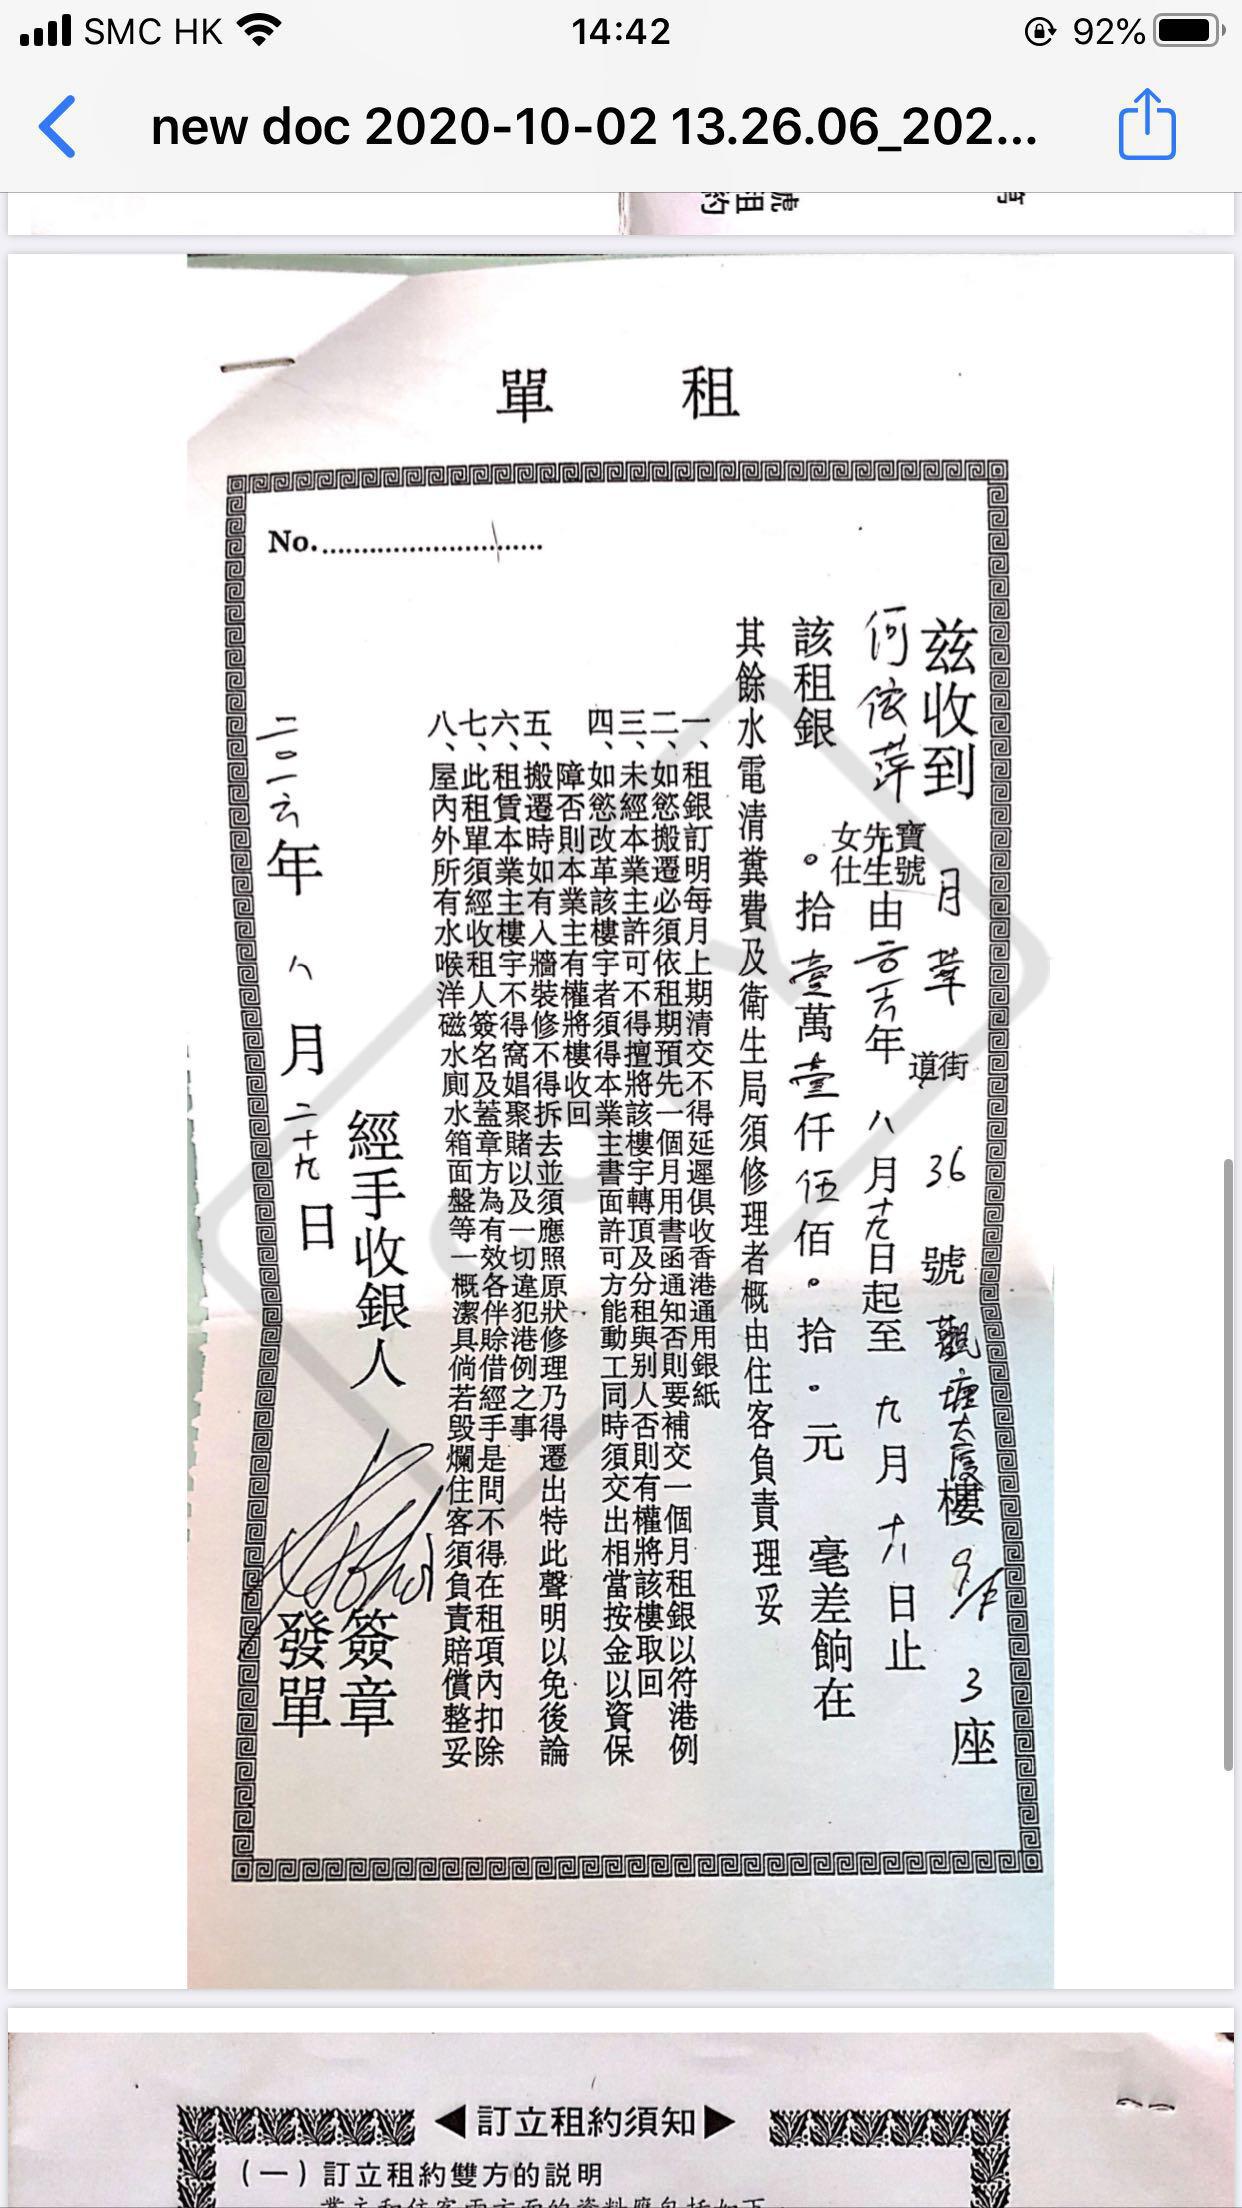 SMC HK 14:42 92%
new doc 2020-10-02 13.26.06_202...
號租約
寫
租單
No.
茲收到 月華 街道 36 號 觀塘大廈樓 9/F 3 座
何依萍 寶號先生女仕由二〇一六年 八月十九日起至 九月十八日止
該租銀 。拾壹萬壹仟伍佰。拾。元 毫差餉在
其餘水電清糞費及衛生局須修理者概由住客負責理妥
一、租銀訂明每月上期清交不得延遲俱收香港通用銀紙
二、如慾搬遷必須依租期預先一個月用書函通知否則要補交一個月租銀以符港例
三、未經本業主許可不得擅將該樓宇轉頂及分租與別人否則有權將該樓取回
四、如慾改革該樓宇者須得本業主書面許可方能動工同時須交出相當按金以資保
障否則本業主有權將樓收回
五、搬遷時如有入牆裝修不得拆去並須應照原狀修理乃得遷出特此聲明以免後論
六、租賃本業主樓宇不得窩娼聚賭以及一切違犯港例之事
七、此租單須經收租人簽名及蓋章方為有效各伴賒借經手是問不得在租項內扣除
八、屋內外所有水喉洋磁水廁水箱面盤等一概潔具倘若毀爛住客須負責賠償整妥
經手收銀人 簽章
二〇一六年 八月二十九日 發單
COPY
◀訂立租約須知▶
(一)訂立租約雙方的説明
業主和住客雙方面的資料應包括如下